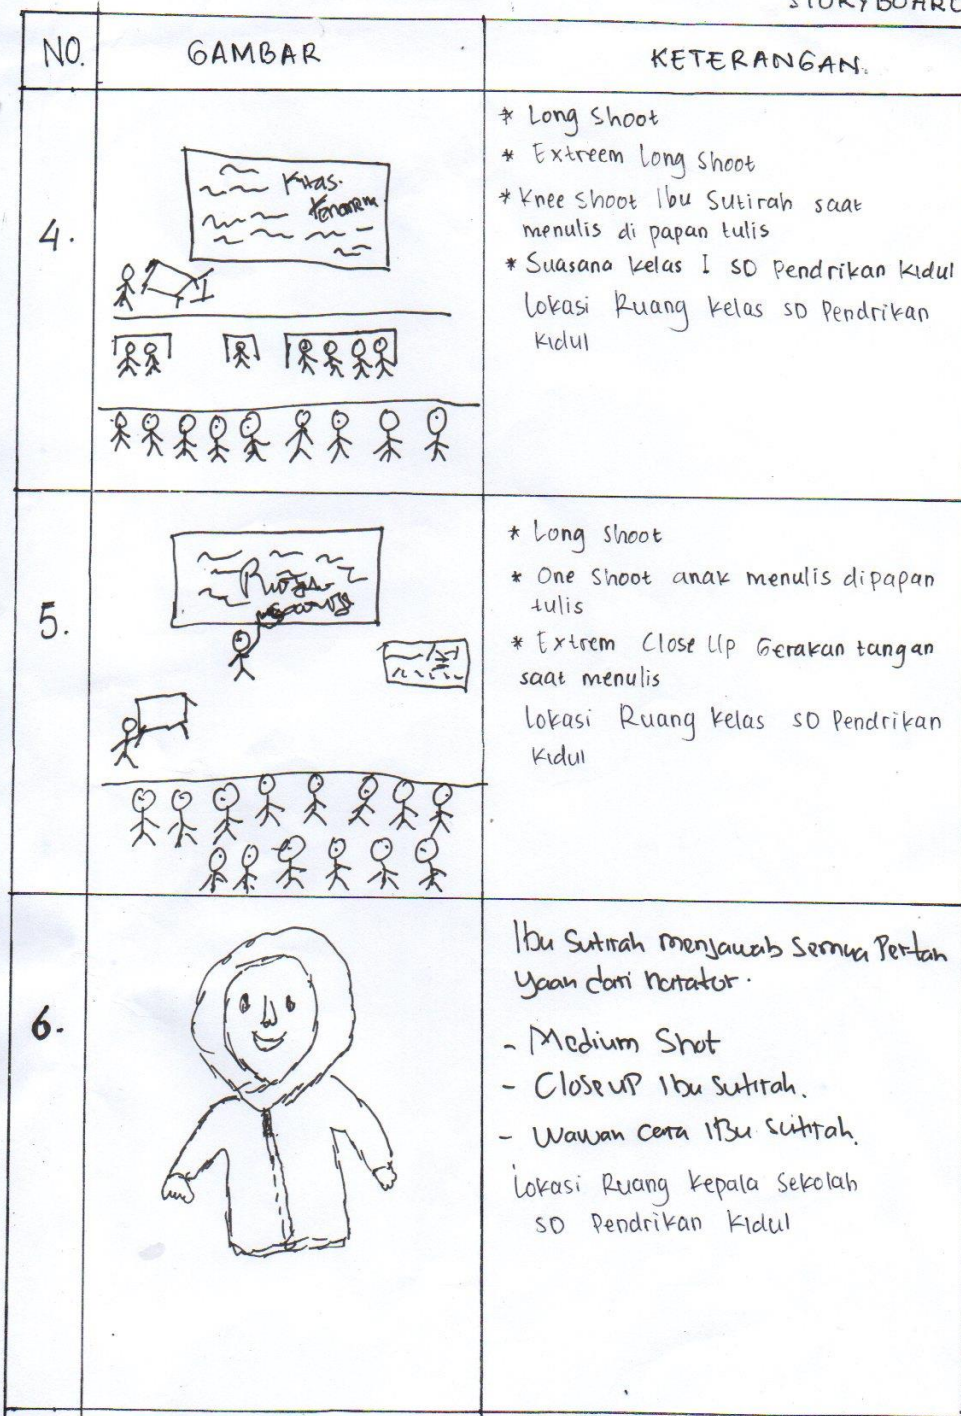 STORYBOARD
NO.
GAMBAR
KETERANGAN.
4.
* Long Shoot
* Extreem Long Shoot
* Knee Shoot Ibu Sutirah saat
menulis di papan tulis
* Suasana kelas I SD Pendrikan Kidul
Lokasi Ruang kelas SD Pendrikan
Kidul
5.
* Long Shoot
* One Shoot anak menulis dipapan
tulis
* Extrem Close Up Gerakan tangan
saat menulis
Lokasi Ruang kelas SD Pendrikan
Kidul
6.
Ibu Sutirah menjawab Semua Pertan
yaan dari narator.
- Medium Shot
- Close uP Ibu Sutirah.
- Wawan cara Ibu Sutirah.
Lokasi Ruang Kepala Sekolah
SD Pendrikan Kidul